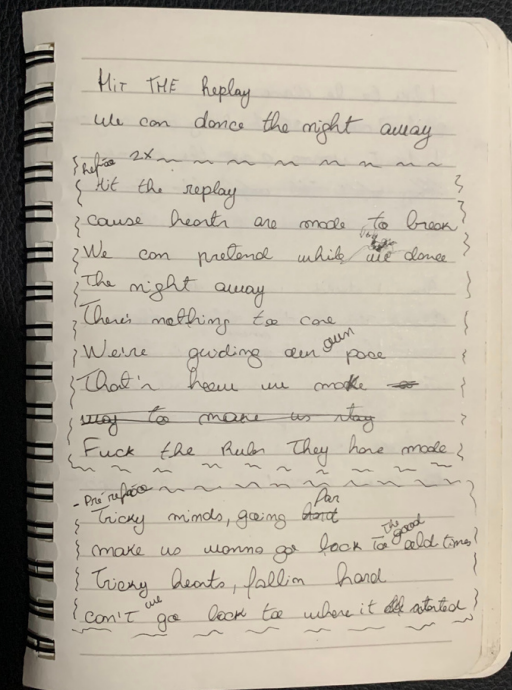 Hit THE Replay
We can dance the night away
Refrão 2x
Hit the replay
cause hearts are made to break
We can pretend while we dance
The night away
There's nothing to care
We're guiding our own pace
That's how we make
way to make us stay
Fuck the Rules They have made
- Pré refrão
Tricky minds, going hard far
make us wanna go back To The good old times
Tricky hearts, fallin hard
can't we go back to where it started